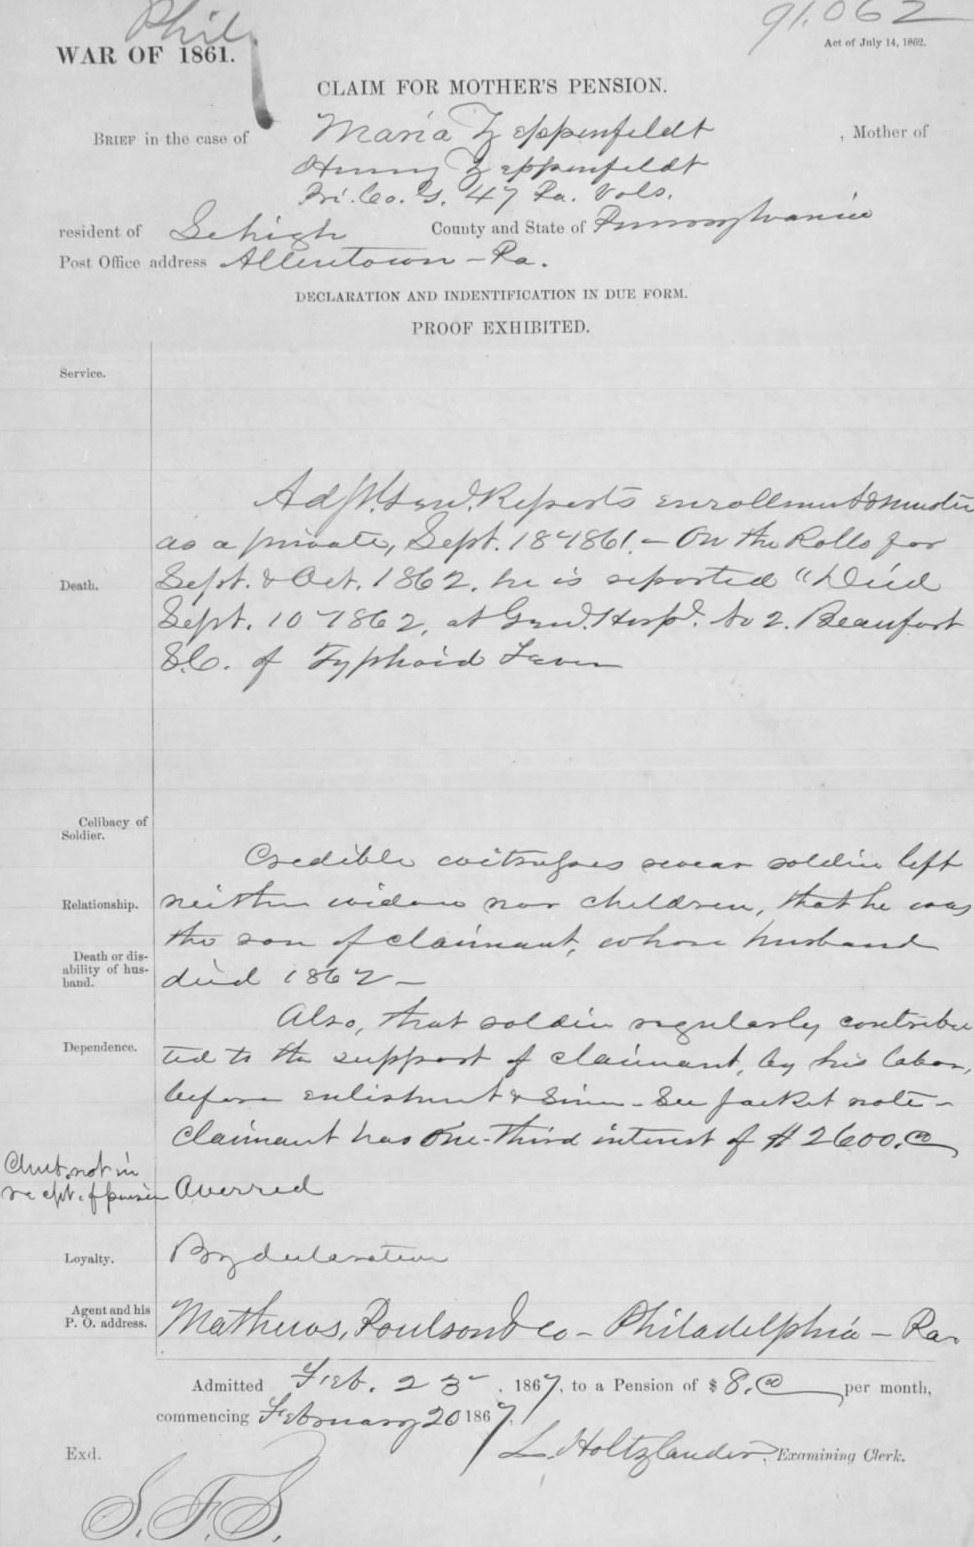 Phil
91.062
WAR OF 1861.
Act of July 14, 1862.
CLAIM FOR MOTHER'S PENSION.
BRIEF in the case of Maria Zeppenfeldt, Mother of
Henry Zeppenfeldt
Pri. Co. G. 47 Pa. Vols.
resident of Lehigh County and State of Pennsylvania
Post Office address Allentown - Pa.
DECLARATION AND INDENTIFICATION IN DUE FORM.
PROOF EXHIBITED.
Service.
Adjt. Genl. Reports enrollment & muster
as a private, Sept. 18 1861. - On the Rolls for
Death.
Sept. & Oct. 1862. he is reported "Died
Sept. 10 1862, at Genl. Hospl. No 2. Beaufort
S.C. of Typhoid Fever
Celibacy of
Soldier.
Credible witnesses swear soldier left
Relationship.
neither widow nor children, that he was
the son of claimant, whose husband
Death or dis-
ability of hus-
band.
died 1862 -
Also, that soldier regularly contribu
Dependence.
ted to the support of claimant, by his labor,
before enlistment & since - See Jacket note -
Claimant has one-third interest of $2600.00
Clmt. not in
recpt. of pension
Averred
Loyalty.
By declaration
Agent and his
P. O. address.
Mathews, Poulson & Co - Philadelphia - Pa.
Admitted Feb. 23, 1867, to a Pension of $8.00 per month,
commencing February 20 1867.
Exd.
L. Holtzlander, Examining Clerk.
S.F.S.